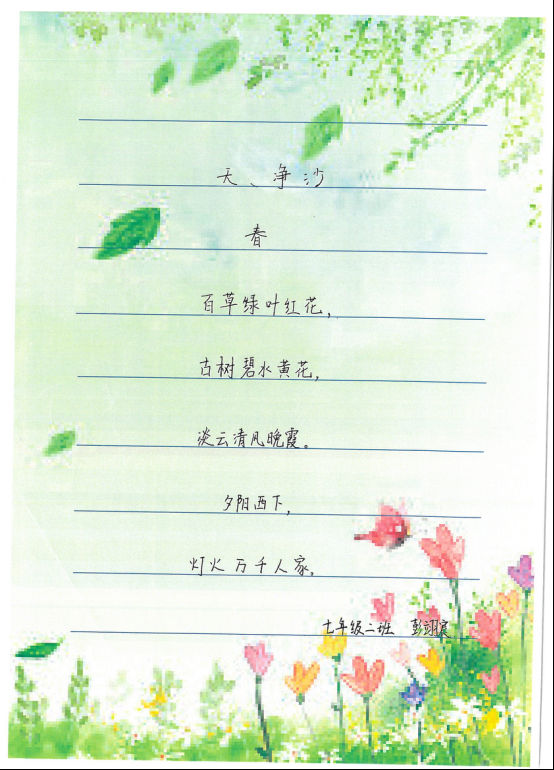 天、净沙
春
百草绿叶红花，
古树碧水黄花，
淡云清风晚霞。
夕阳西下，
灯火万千人家。
七年级二班 彭翊宸